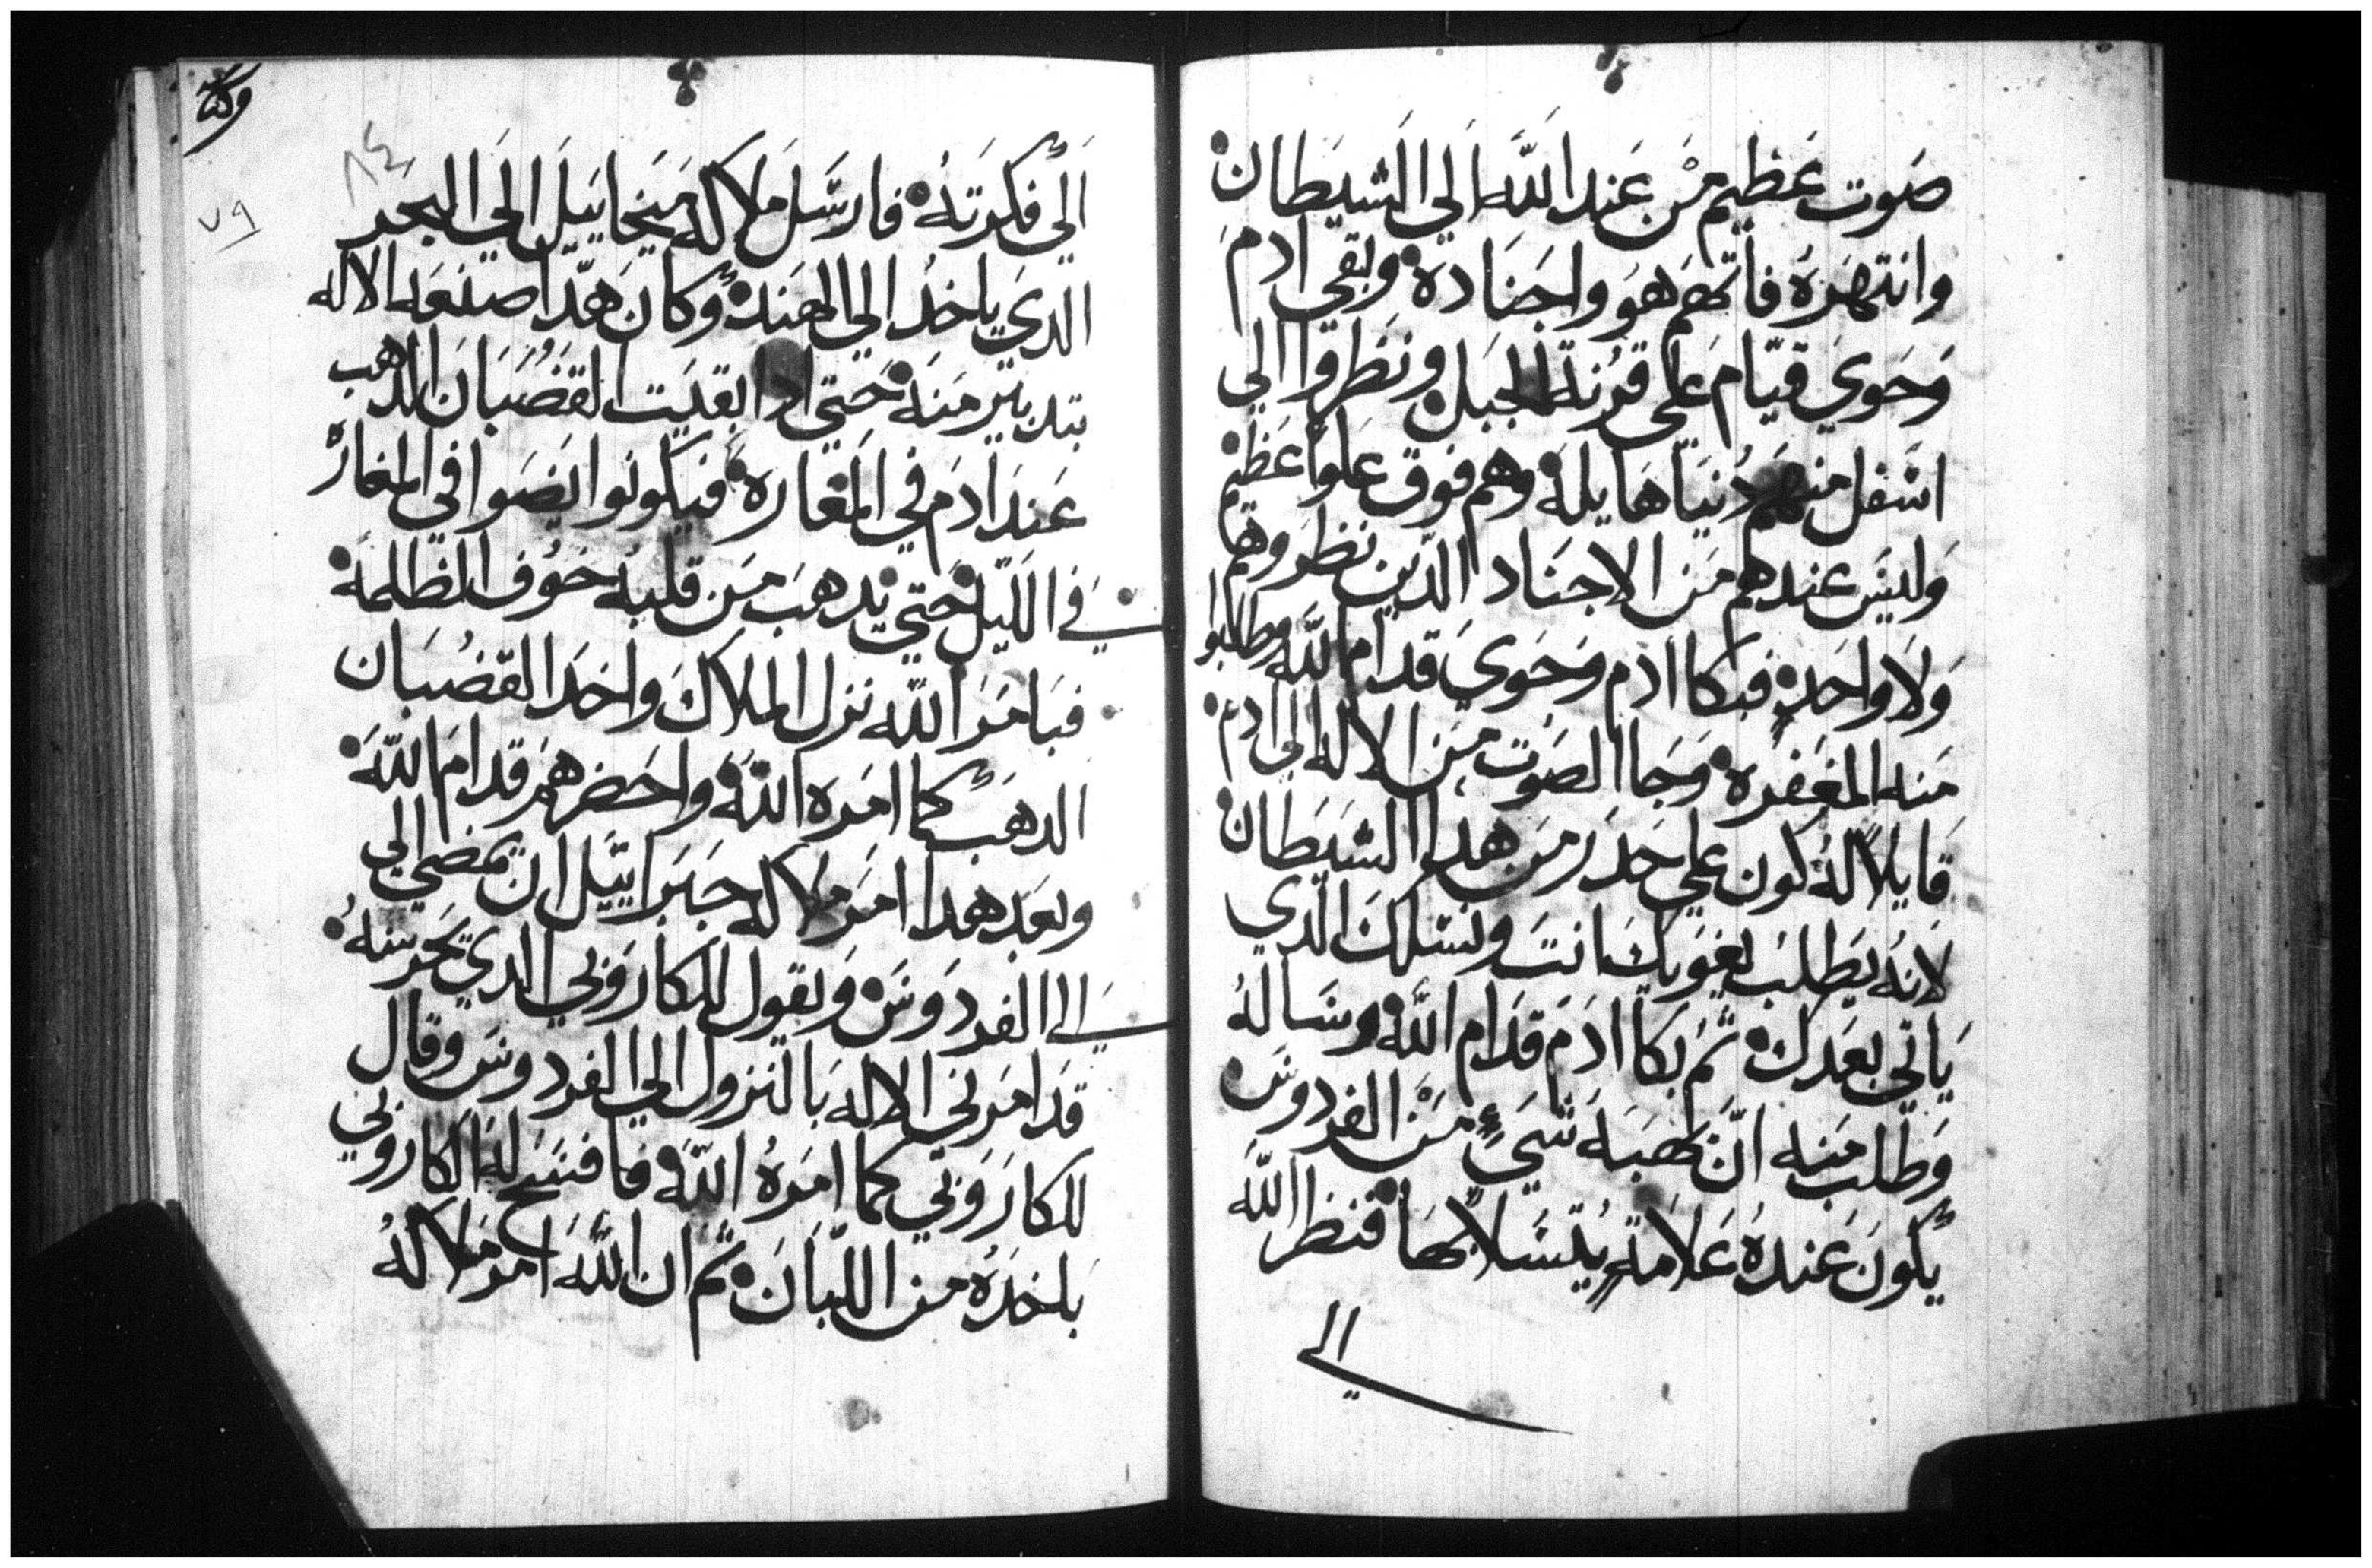 صَوت عَظيم مِن عَند اللَّه الي الشيَطان
وانتهَرَهُ فاتهم هوَ واجنَاده وبقي ادمَ
وَحَوي قيّام عَلي قرنة الجبَل ونَظروا الي
اسْفل منهَم دُنيَا هَايلة وهم فوق عَلوًا عَظيْم
وَليسَ عندهم مَن الاجنَاد الدّين نظروهم
وَلاَ واحَدٍ فبكا ادم وَحَوي قدام اللَّه وطالبوا
مَنه المغَفره وَجَا الصَوت مِن الاله الي ادم
قَايلاً لهُ كون علي حَدَر مَن هدا الشيَطان
لاَنهُ يَطلبُ يغوَيك انتَ ونسْلكَ الّدي
يَاتي بعَدك ثمُ بكا ادَمَ قدَام اللَّه وسَالهُ
وَطلبَ مَنه انّ يَهبَه شيَءٍ مَن الفردوسَ
يكونَ عَندهُ عَلاَمةٍ يُتسَلاَ بهَا فنظر اللَّه
الي
وكتا
٨٤
٧٩
الَي فكرَتهُ فارسَّلَ مَلاكه مَيخاييَل الَي البحر
الدَي ياخدُ الي الهَند وكانَ هَدّا صنعَه الاله
بتدبيَر مَنهَ حَتي ادا بقيَت القَضُبَانَ الدهب
عَندَ ادَمَ في المَغاره فيَكونوا يضَوا في المغارَة
في الليّل حَتي يَدهبَ مَن قلبهُ خَوُف الظلمةَ
فبَامَرَ اللَّه نزل الملاكَ واخدَ القضُبَان
الدهَبَ كما امَره اللَّهَ واحَضرهَم قدامَ اللَّهَ
وبعَد هَدا امَرَ مَلاكه جبَراييَل ان يَمضي الي
الي الفردَوسَ وَيقول للكارَوبي الدي يَحَرسهُ
قدَ امَرَني الاله بَالنَزول الي الفردوسَ وقال
للكارَوبي كما امَرهُ اللَّهَ فافسَح لهَ الكارَوبي
بَاخدَهُ مَن اللبَانَ ثم ان اللَّهَ امَرَ مَلاكهُ